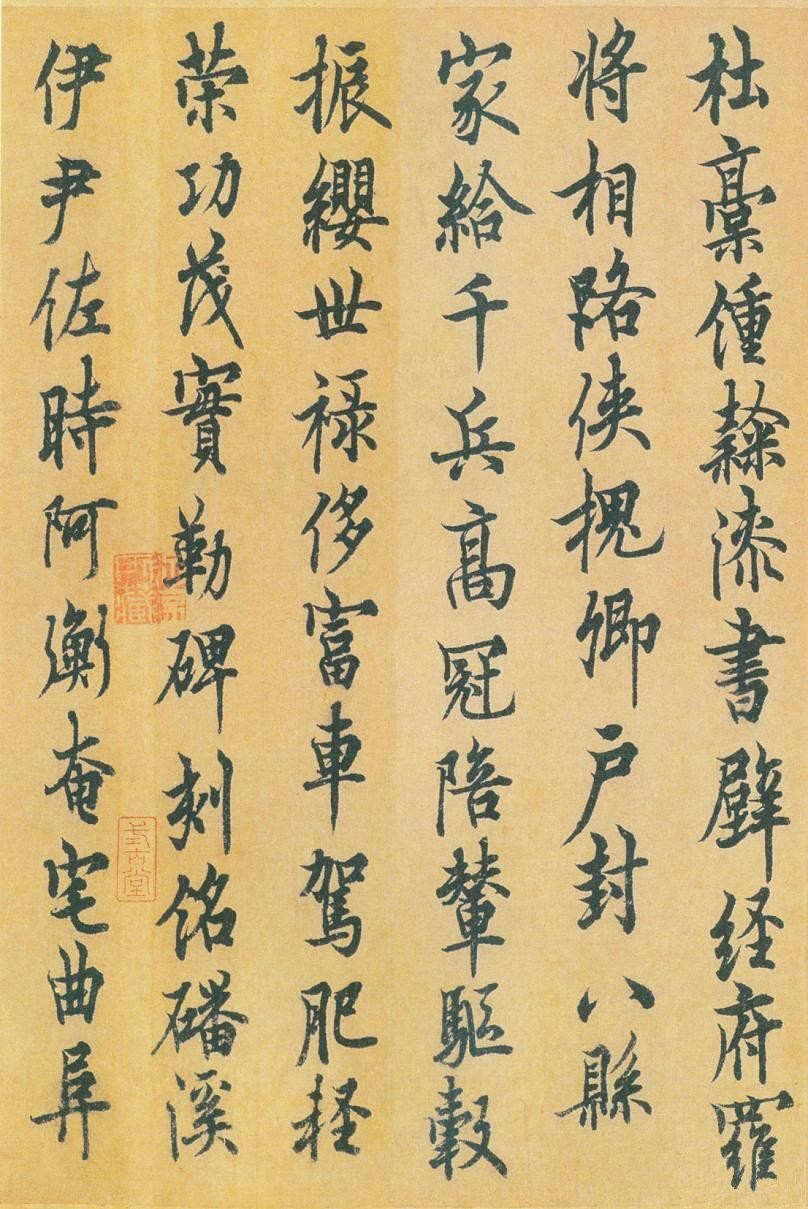 杜稾鍾隸漆書壁経府羅
将相路俠槐卿户封八縣
家給千兵高冠陪輦驅轂
振纓世禄侈富車駕肥軽
策功茂實勒碑刻銘磻溪
伊尹佐時阿衡奄宅曲阜
式古堂